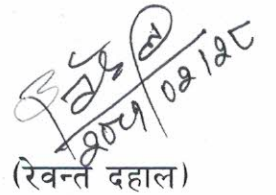 २०८१/०२/२८
(रेवन्त दहाल)